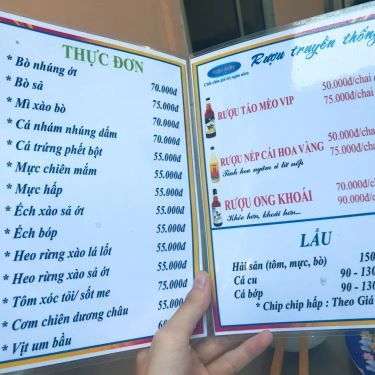 THỰC ĐƠN
* Bò nhúng ớt
* Bò sả 70.000đ
* Mì xào bò 75.000đ
* Cá nhám nhúng dấm 70.000đ
* Cá trứng phết bột 55.000đ
* Mực chiên mắm 55.000đ
* Mực hấp 55.000đ
* Ếch xào sả ớt 55.000đ
* Ếch bóp 55.000đ
* Heo rừng xào lá lốt 55.000đ
* Heo rừng xào sả ớt 55.000đ
* Tôm xóc tỏi/ sốt me 75.000đ
* Cơm chiên dương châu 55.000đ
* Vịt um bầu
Rượu truyền thống
50.000đ/chai
RƯỢU TÁO MÈO VIP 75.000đ/chai
50.000đ/chai
RƯỢU NẾP CÁI HOA VÀNG 75.000đ/chai
Tinh hoa ngàm ủ từ nếp
70.000đ/
RƯỢU ONG KHOÁI 90.000đ/
Khỏe hơn, khoái hơn...
LẨU
Hải sản (tôm, mực, bò) 150
Cá cu 90 - 130
Cá bớp 90 - 130
* Chip chip hấp : Theo Giá